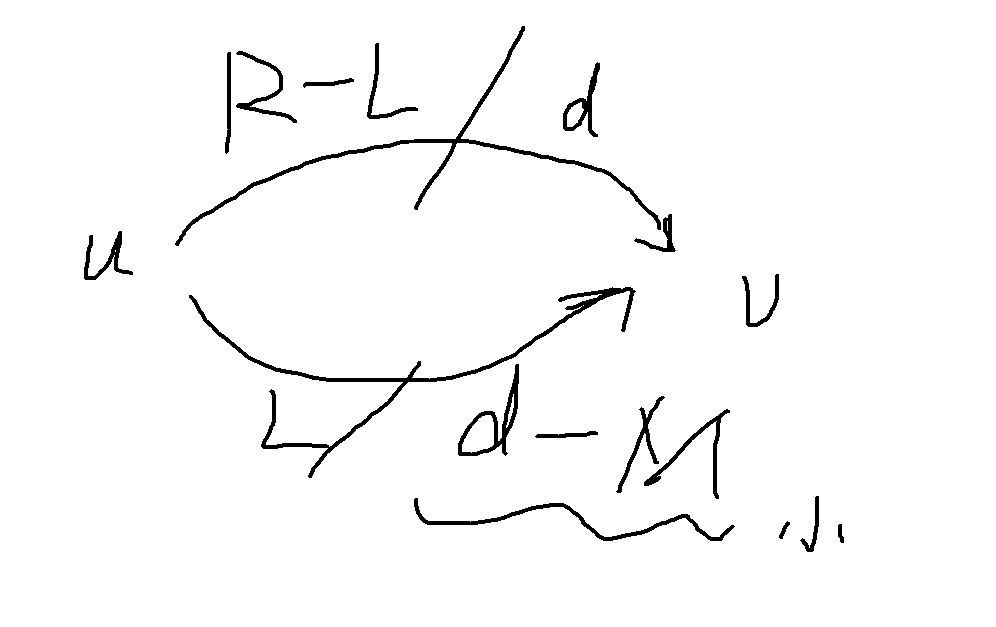 R-L/d
u
v
L/d-M
小